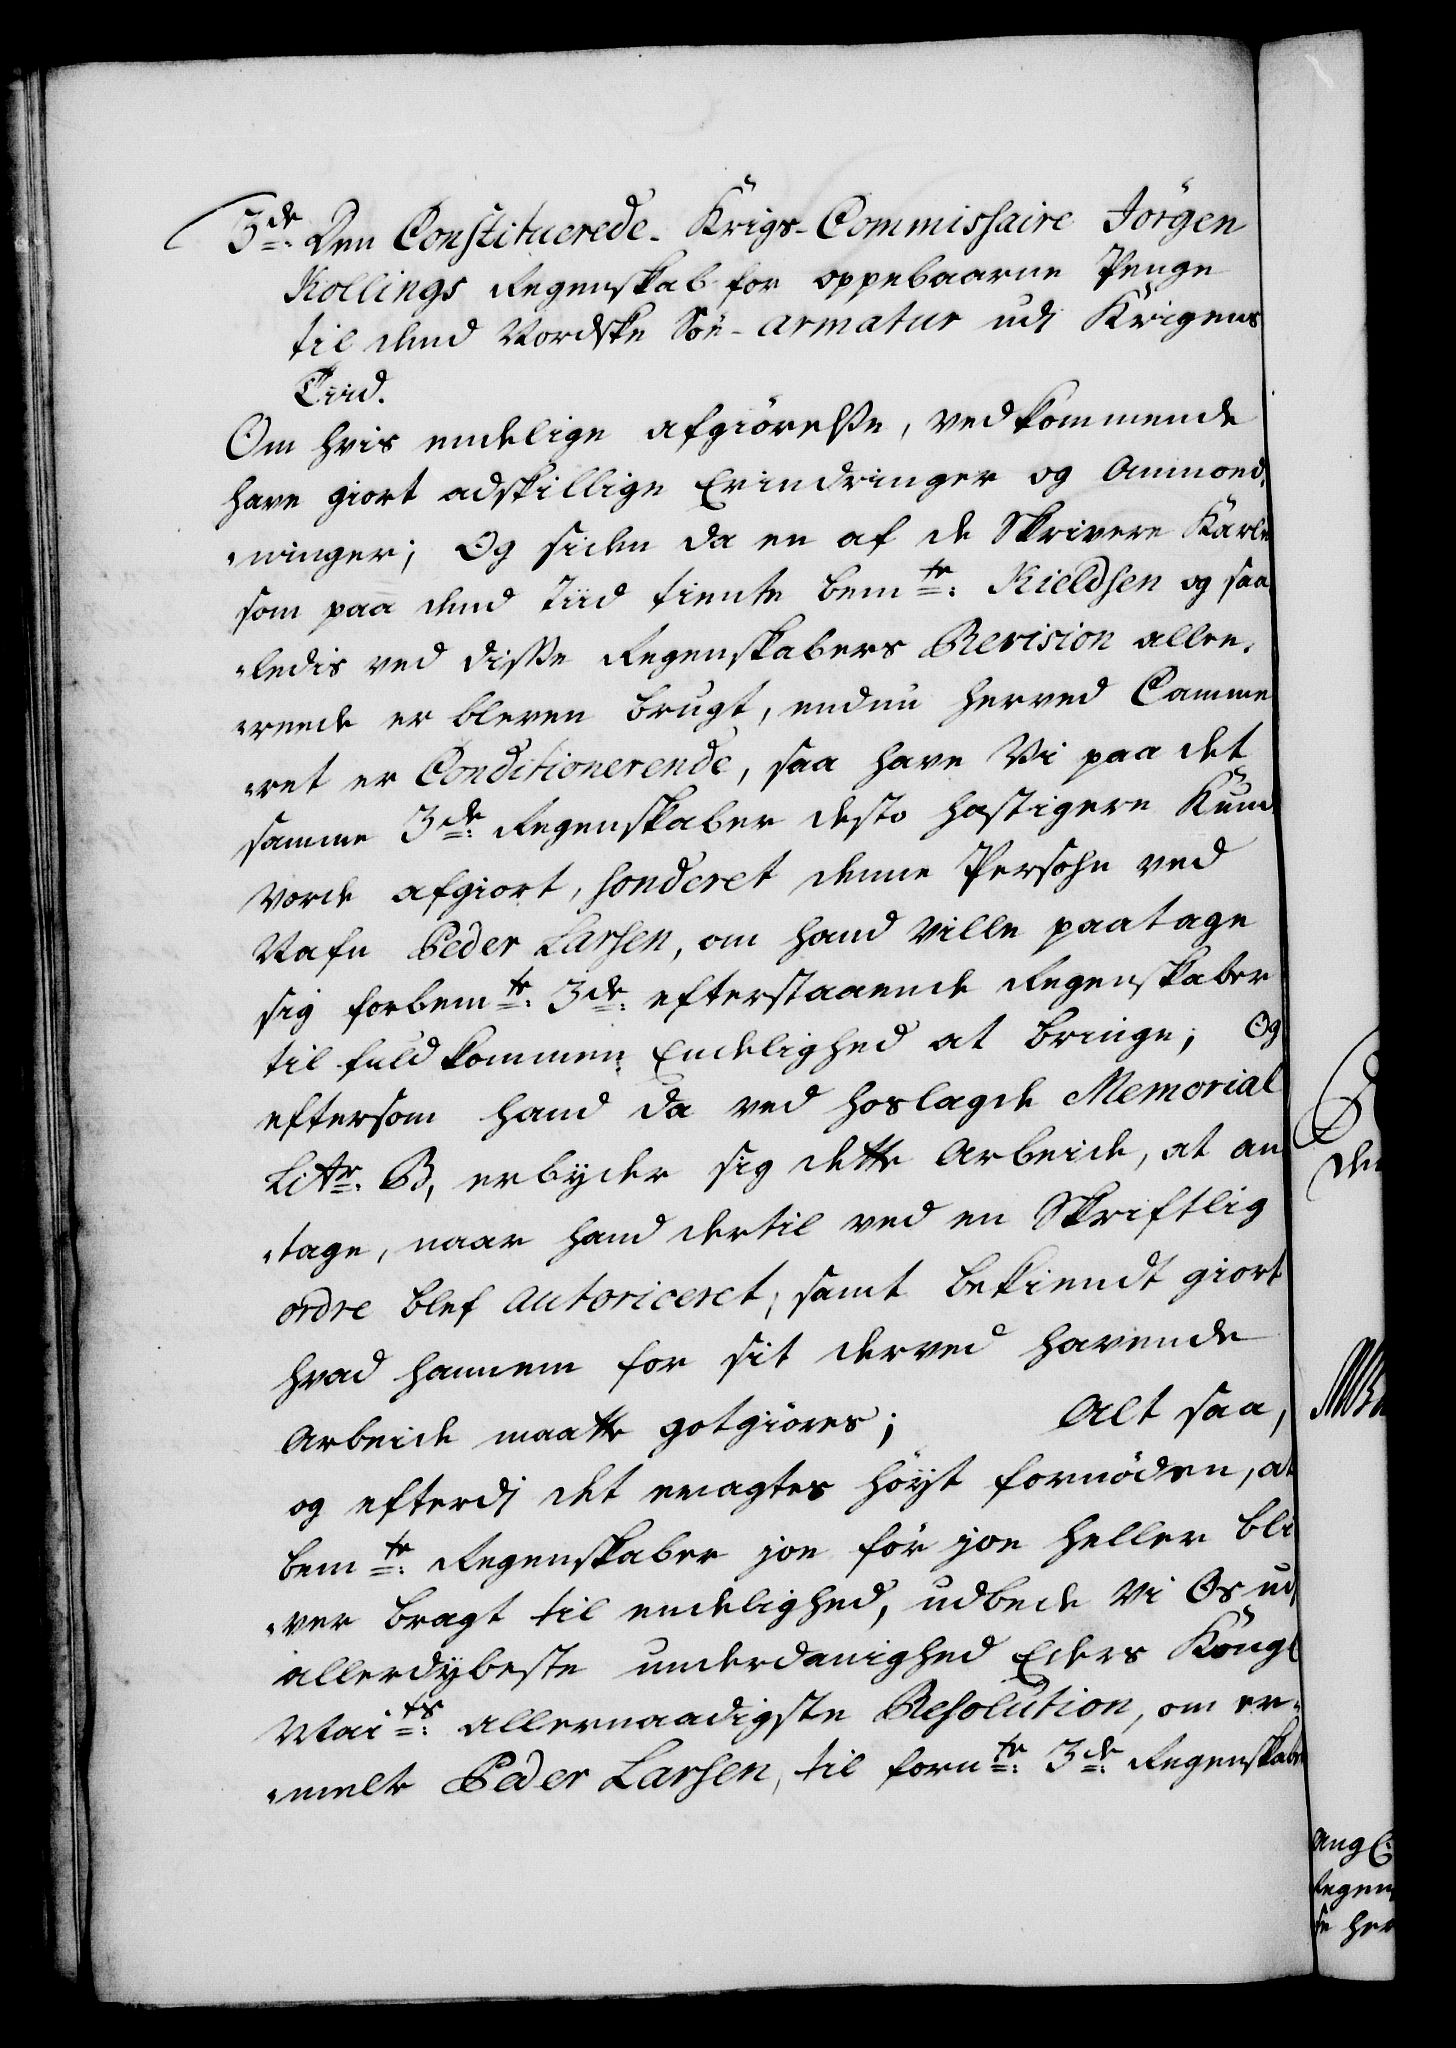 3de: Den Constituerede Krigs-Commissaire Jörgen
Kollings Regenskab for oppebaarne Penge
til dend Nordske Söe-armatur udj Krigens
Tiid.
Om hvis endelige afgiörelße, vedkommende
have giort adskillige Erindringer og Anmoed-
"ninger; Og siden da en af de Skrivere Karle
som paa dend Tiid tiente bemte: Kieldsen og saa
"ledis ved diße Regenskabers Revision alle-
"reede er bleven brugt, endnu herved Camme
"ret er Conditionerende, saa have Vi paa det
samme 3de: Regenskaber desto hastigere Kund
vorde afgiort, sonderet denne Persohn ved
Nafn Peder Larsen, om hand ville paatage
sig forbemte: 3de: efterstaaende Regenskaber
til fuldkommen Endelighed at bringe; Og
eftersom hand da ved hoslagde Memorial
Litr: B, erbyder sig dette Arbeide, at an
"tage, naar hand dertil ved en Skriftlig
ordre blef autoriceret, samt bekiendt giort
hvad hannem for sit derved havende
Arbeide maatte gotgiöres; Alt saa,
og efterdj det eragtes höyst fornöden, at
bemte: Regenskaber joe för joe heller bli
"ver bragt til endelighed, udbede Vi Os udj
allerdybeste underdanighed Eders Kongl
Maits: allernaadigste Resolution, om er-
"melte Peder Larsen, til fornte: 3de: Regenskabe